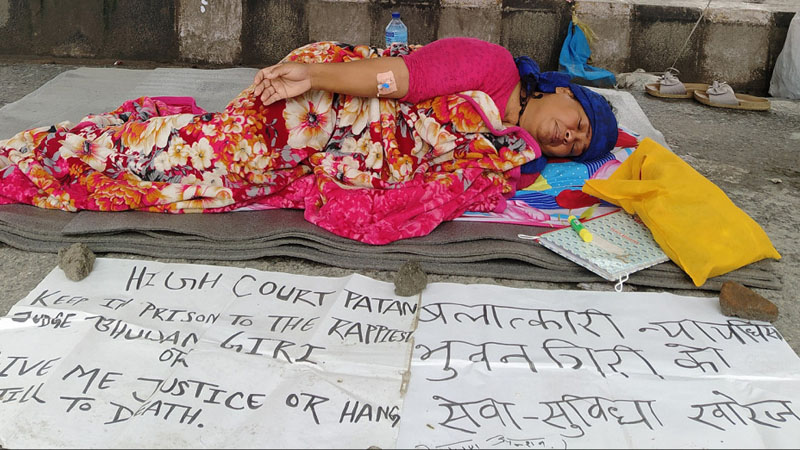 HIGH COURT PATAN
KEEP IN PRISON TO THE RAPPIEST
JUDGE BHUBAN GIRI
OR
GIVE ME JUSTICE OR HANG
TILL TO DEATH.
बलात्कारी न्यायाधिस
भुवन गिरी को
सेवा-सुविधा खोरेज